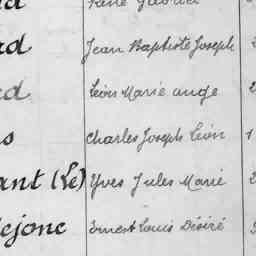 René Gabriel
Jean Baptiste Joseph
Léon Marie ange
Charles Joseph Léon
ant (Le) Yves Jules Marie
ejone Ernest Louis Désiré